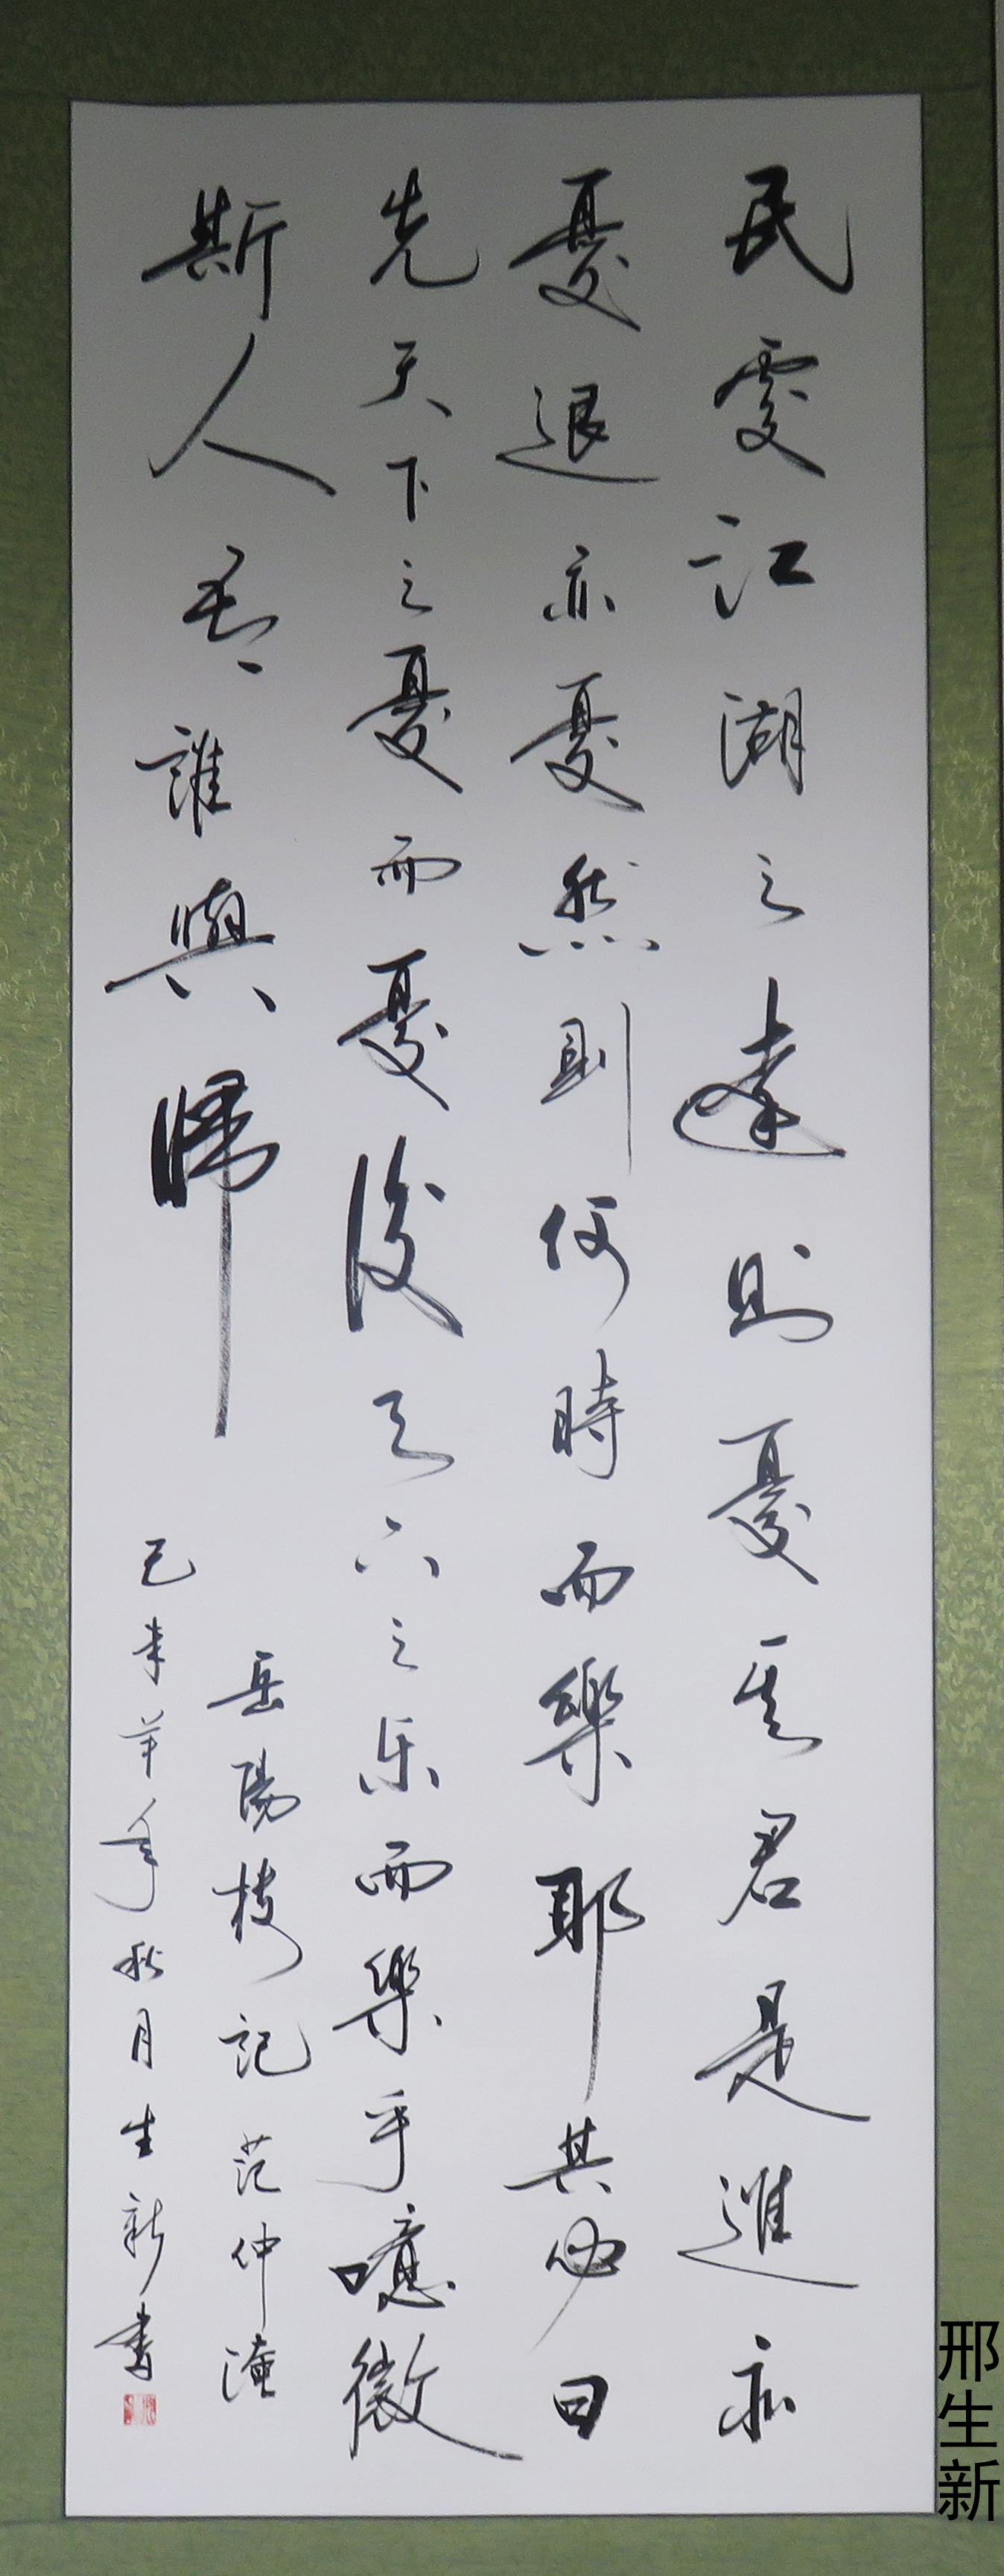 民處江湖之遠則憂其君是進亦
憂退亦憂然則何時而樂耶其必曰
先天下之憂而憂後天下之乐而樂乎噫微
斯人吾誰與歸
岳陽楼記 范仲淹
己未羊年秋月生新書
邢生新